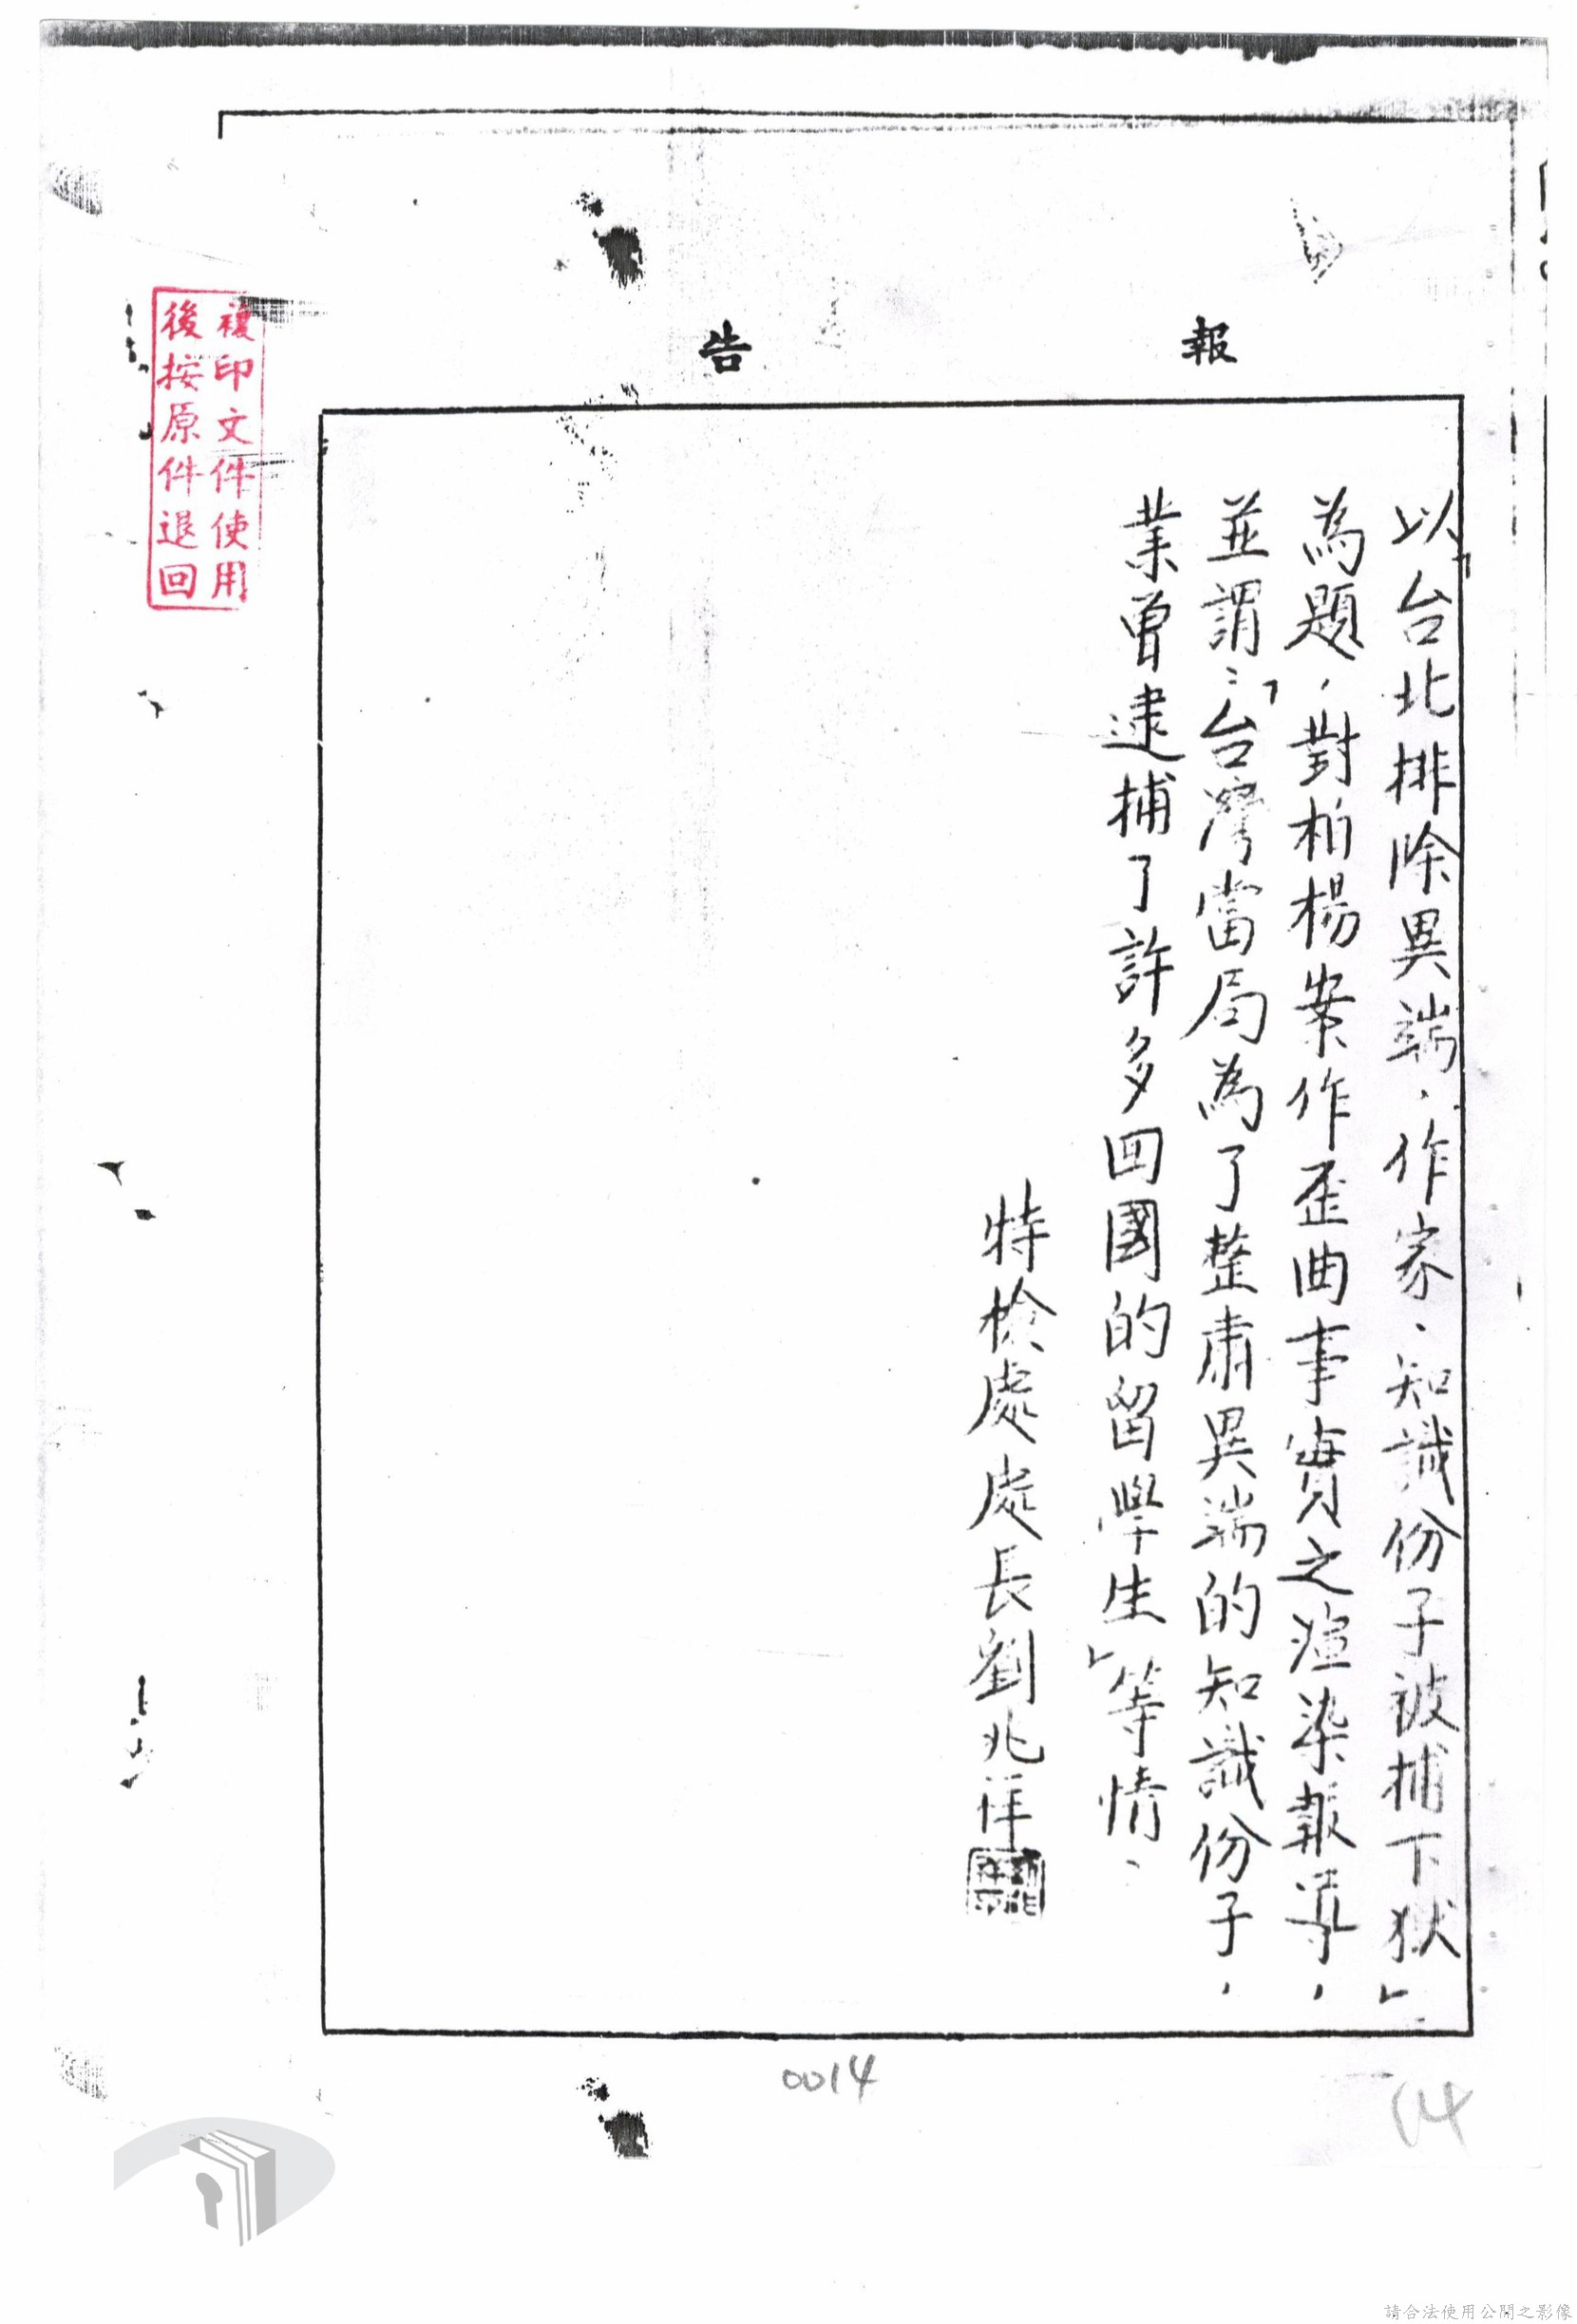 報告
以「台北排除異端.作家.知識份子被捕下獄」
為題,對柏楊案作歪曲事實之渲染報導,
並謂:「台灣當局為了整肅異端的知識份子,
業曾逮捕了許多回國的留學生」等情.
特檢處處長劉兆祥
複印文件使用
後按原件退回
0014
14
請合法使用公開之影像